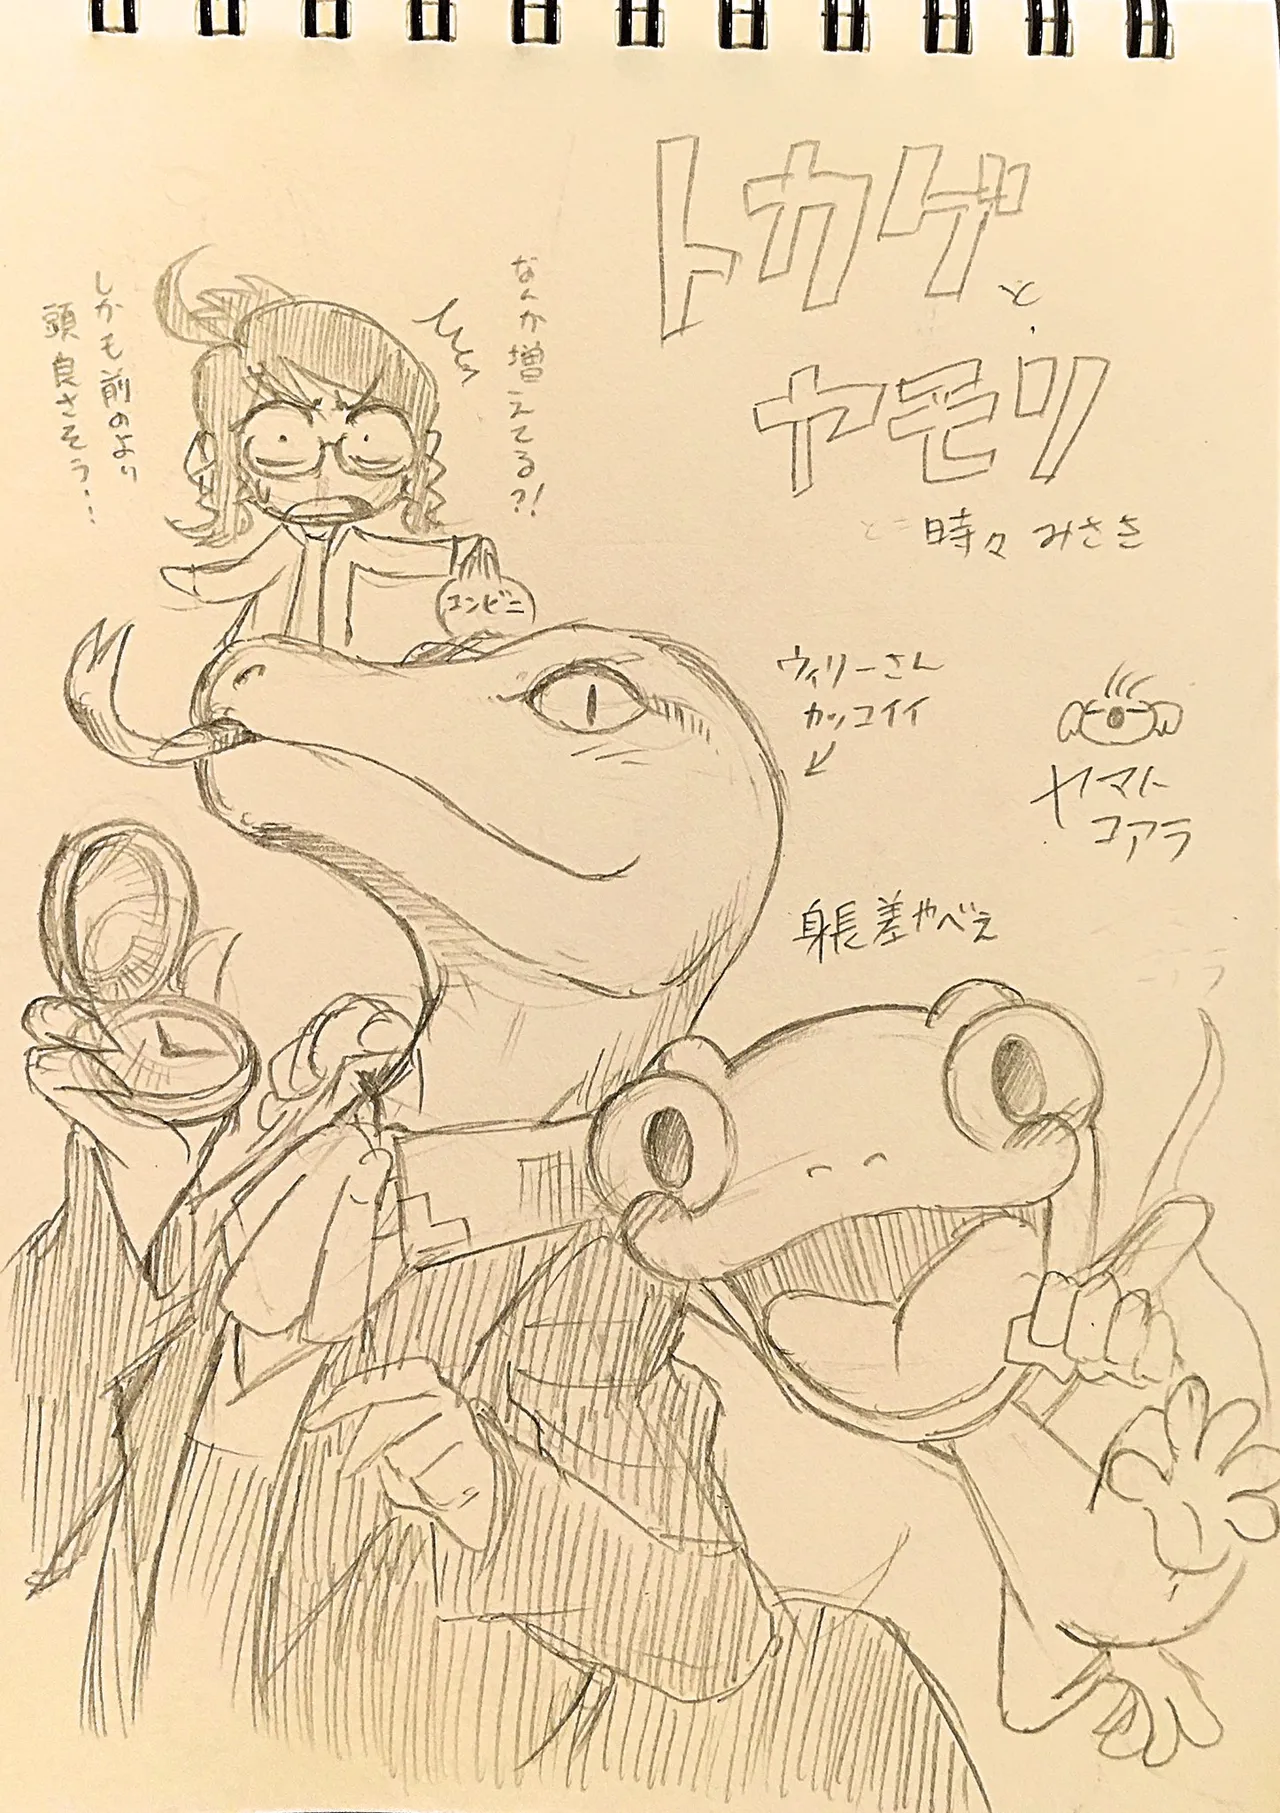 トカゲ
と
ヤモリ
と 時々 みさき
なんか増えてる?!
しかも前のより
頭良さそう…
コンビニ
ウィリーさん
カッコイイ
ヤマト
コアラ
身長差やべぇ